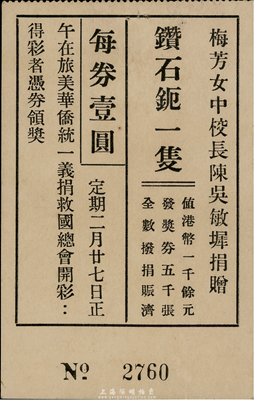 梅芳女中校長陳吳敏墀捐贈
鑽石鈪一隻
值港幣一千餘元
發獎券五千張
全數撥捐賑濟
每券壹圓
定期二月廿七日正
午在旅美華僑統一義捐救國總會開彩：
得彩者憑券領獎
№ 2760